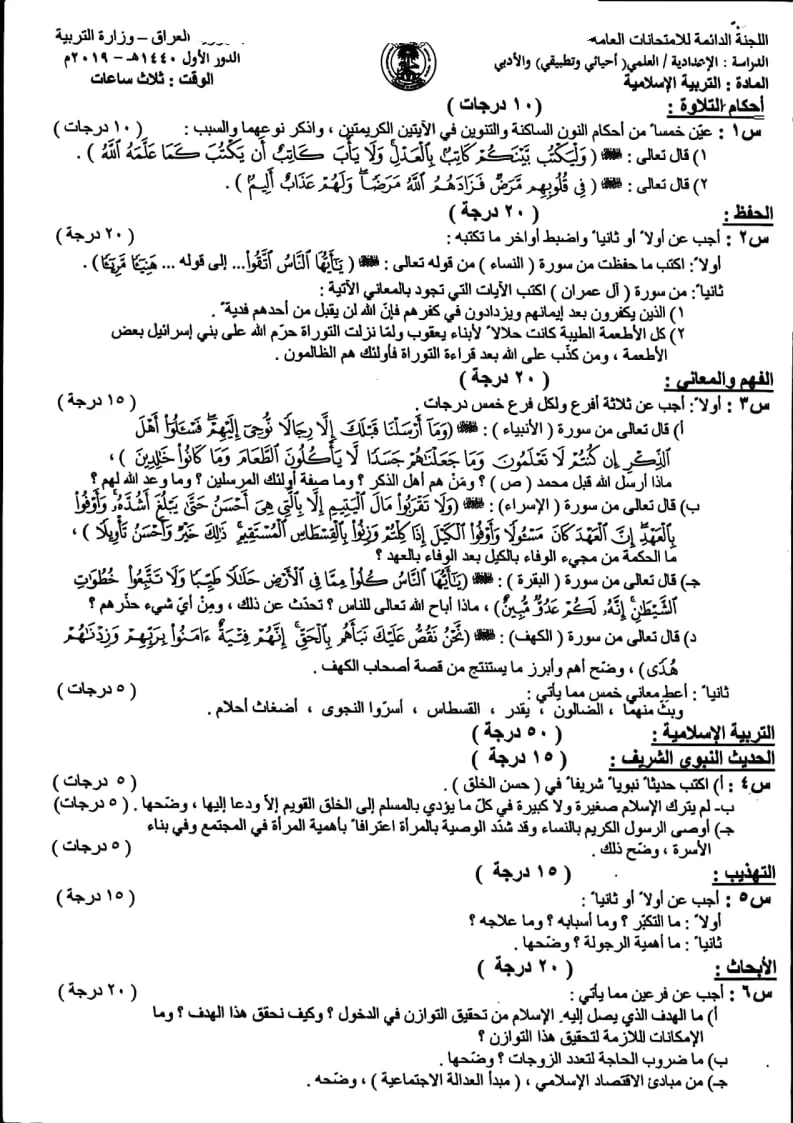 اللجنة الدائمة للامتحانات العامة
العراق - وزارة التربية
الدراسة : الإعدادية / العلمي( أحيائي وتطبيقي) والأدبي
الدور الأول ١٤٤٠هـ - ٢٠١٩م
المادة : التربية الإسلامية
الوقت : ثلاث ساعات
أحكام التلاوة : ( ١٠ درجات )
س١ : عيّن خمساً من أحكام النون الساكنة والتنوين في الآيتين الكريمتين ، واذكر نوعهما والسبب : ( ١٠ درجات )
١) قال تعالى : ﷽ ( وَلْيَكْتُب بَّيْنَكُمْ كَاتِبٌ بِالْعَدْلِ وَلَا يَأْبَ كَاتِبٌ أَن يَكْتُبَ كَمَا عَلَّمَهُ اللَّهُ ) .
٢) قال تعالى : ﷽ ( فِي قُلُوبِهِم مَّرَضٌ فَزَادَهُمُ اللَّهُ مَرَضًا وَلَهُمْ عَذَابٌ أَلِيمٌ ) .
الحفظ : ( ٢٠ درجة )
س٢ : أجب عن أولاً أو ثانياً واضبط أواخر ما تكتبه : ( ٢٠ درجة )
أولاً: اكتب ما حفظت من سورة ( النساء ) من قوله تعالى : ﷽ ( يَٰٓأَيُّهَا النَّاسُ اتَّقُوا... إلى قوله ... هَنِيئًا مَّرِيئًا ) .
ثانياً: من سورة ( آل عمران ) اكتب الآيات التي تجود بالمعاني الآتية :
١) الذين يكفرون بعد إيمانهم ويزدادون في كفرهم فإنّ الله لن يقبل من أحدهم فدية .
٢) كل الأطعمة الطيبة كانت حلالاً لأبناء يعقوب ولمّا نزلت التوراة حرّم الله على بني إسرائيل بعض
الأطعمة ، ومن كذّب على الله بعد قراءة التوراة فأولئك هم الظالمون .
الفهم والمعاني : ( ٢٠ درجة )
س٣ : أولاً : أجب عن ثلاثة أفرع ولكل فرع خمس درجات . ( ١٥ درجة )
أ) قال تعالى من سورة ( الأنبياء ) : ﷽ (وَمَا أَرْسَلْنَا قَبْلَكَ إِلَّا رِجَالًا نُّوحِي إِلَيْهِمْ فَسْـَٔلُوا أَهْلَ
الذِّكْرِ إِن كُنتُمْ لَا تَعْلَمُونَ وَمَا جَعَلْنَٰهُمْ جَسَدًا لَّا يَأْكُلُونَ الطَّعَامَ وَمَا كَانُوا خَٰلِدِينَ ) ،
ماذا أرسل الله قبل محمد ( ص ) ؟ ومَنْ هم أهل الذكر ؟ وما صفة أولئك المرسلين ؟ وما وعد الله لهم ؟
ب) قال تعالى من سورة ( الإسراء ) : ﷽ (وَلَا تَقْرَبُوا مَالَ الْيَتِيمِ إِلَّا بِالَّتِي هِيَ أَحْسَنُ حَتَّىٰ يَبْلُغَ أَشُدَّهُ وَأَوْفُوا
بِالْعَهْدِ إِنَّ الْعَهْدَ كَانَ مَسْئُولًا وَأَوْفُوا الْكَيْلَ إِذَا كِلْتُمْ وَزِنُوا بِالْقِسْطَاسِ الْمُسْتَقِيمِ ذَٰلِكَ خَيْرٌ وَأَحْسَنُ تَأْوِيلًا ) ،
ما الحكمة من مجيء الوفاء بالكيل بعد الوفاء بالعهد ؟
جـ) قال تعالى من سورة ( البقرة ) : ﷽ (يَٰٓأَيُّهَا النَّاسُ كُلُوا مِمَّا فِي الْأَرْضِ حَلَٰلًا طَيِّبًا وَلَا تَتَّبِعُوا خُطُوَٰتِ
الشَّيْطَٰنِ إِنَّهُ لَكُمْ عَدُوٌّ مُّبِينٌ ) ، ماذا أباح الله تعالى للناس ؟ تحدث عن ذلك ، ومِنْ أيّ شيء حذّرهم ؟
د) قال تعالى من سورة ( الكهف) : ﷽ (نَّحْنُ نَقُصُّ عَلَيْكَ نَبَأَهُم بِالْحَقِّ إِنَّهُمْ فِتْيَةٌ ءَامَنُوا بِرَبِّهِمْ وَزِدْنَٰهُمْ
هُدًى) ، وضّح أهم وأبرز ما يستنتج من قصة أصحاب الكهف .
ثانياً : أعطِ معاني خمس مما يأتي : ( ٥ درجات )
وبثّ منهما ، الضالون ، يقدر ، القسطاس ، أسرّوا النجوى ، أضغاث أحلام .
التربية الإسلامية : ( ٥٠ درجة )
الحديث النبوي الشريف : ( ١٥ درجة )
س٤ : أ) اكتب حديثاً نبوياً شريفاً في ( حسن الخلق ) . ( ٥ درجات )
ب- لم يترك الإسلام صغيرة ولا كبيرة في كلّ ما يؤدي بالمسلم إلى الخلق القويم إلاّ ودعا إليها ، وضّحها . ( ٥ درجات)
جـ) أوصى الرسول الكريم بالنساء وقد شدّد الوصية بالمرأة اعترافاً بأهمية المرأة في المجتمع وفي بناء
الأسرة ، وضّح ذلك . ( ٥ درجات )
التهذيب : ( ١٥ درجة )
س٥ : أجب عن أولاً أو ثانياً : ( ١٥ درجة )
أولاً : ما التكبّر ؟ وما أسبابه ؟ وما علاجه ؟
ثانياً : ما أهمية الرجولة ؟ وضّحها .
الأبحاث : ( ٢٠ درجة )
س٦ : أجب عن فرعين مما يأتي : ( ٢٠ درجة )
أ) ما الهدف الذي يصل إليه الإسلام من تحقيق التوازن في الدخول ؟ وكيف نحقق هذا الهدف ؟ وما
الإمكانات اللازمة لتحقيق هذا التوازن ؟
ب) ما ضروب الحاجة لتعدد الزوجات ؟ وضّحها .
جـ) من مبادئ الاقتصاد الإسلامي ، ( مبدأ العدالة الاجتماعية ) ، وضّحه .